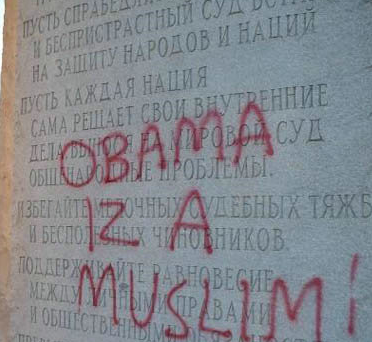 ПУСТЬ СПРАВЕДЛИ
И БЕСПРИСТРАСТНЫЙ СУД ВСТА
НА ЗАЩИТУ НАРОДОВ И НАЦИЙ
ПУСТЬ КАЖДАЯ НАЦИЯ
САМА РЕШАЕТ СВОИ ВНУТРЕННИЕ
ДЕЛА МИРОВОЙ СУД
ОБЩЕНАРОДНЫЕ ПРОБЛЕМЫ.
ИЗБЕГАЙТЕ МЕЛОЧНЫХ СУДЕБНЫХ ТЯЖБ
И БЕСПОЛЕЗНЫХ ЧИНОВНИКОВ.
ПОДДЕРЖИВАЙТЕ РАВНОВЕСИЕ
МЕЖДУ ЛИЧНЫМИ ПРАВАМИ
И ОБЩЕСТВЕННЫМИ
OBAMA
IZ A
MUSLIM!